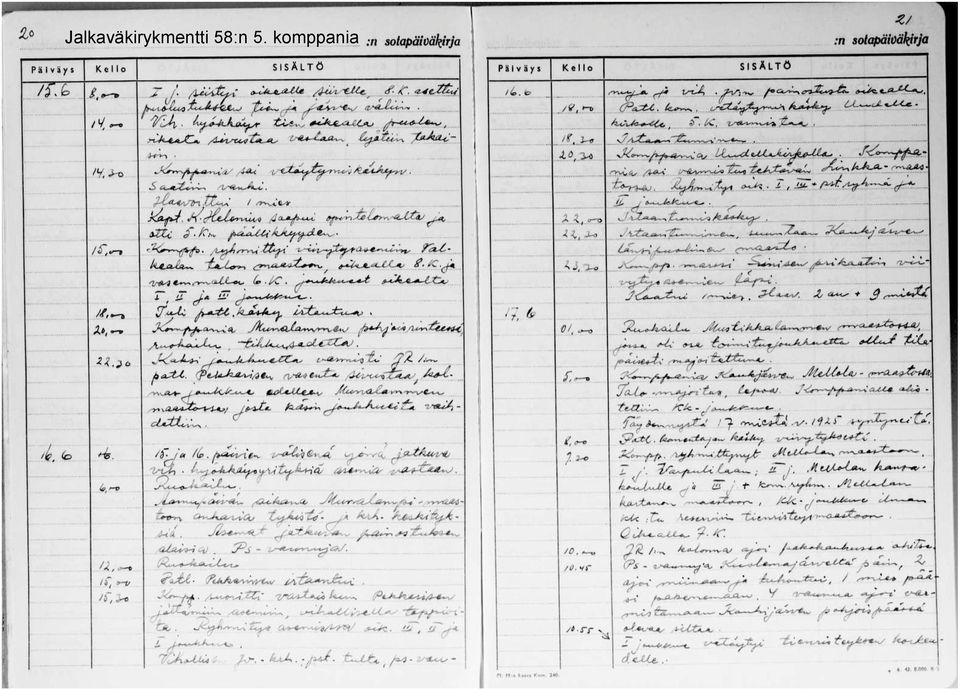 20
Jalkaväkirykmentti 58:n 5. komppania :n sotapäiväkirja
Päiväys Kello SISÄLTÖ
15.6 8,00 I j. siirtyi oikealle siivelle, 8.K. asettui
puolustukseen tien ja järven väliin.
14,00 Vih. hyökkäys tien oikealla puolen,
oikeata sivustaa vastaan, lyötiin takai-
sin.
14,30 Komppania sai vetäytymiskäskyn.
Saatiin vanki.
Haavoittui 1 mies
Kapt. K. Helenius saapui opintolomalta ja
otti 5.K:n päällikkyyden.
15,00 Kompp. ryhmittyi viivytysasemiin Val-
kealan talon maastoon, oikealla 8.K. ja
vasemmalla 6.K. joukkueet oikealta
I, II ja III joukkue.
18,00 Tuli patl. käsky irtautua.
20,00 Komppania Munalammen pohjoisrinteessä
ruokailu, tihkusadetta.
22,30 Kaksi joukkuetta varmisti JR 1:n
patl. Pekkarisen vasenta sivustaa, kol-
mas joukkue edelleen Munalammen
maastossa, josta käsin joukkueita vaih-
dettiin.
16.6 15. ja 16. päivien välisenä yönä jatkuvia
vih. hyökkäysyrityksiä asemia vastaan.
6,00 Ruokailu.
Aamupäivän aikana Munalampi-maas-
toon ankaria tykistö- ja krh. keskityk-
siä. Asemat jatkuvan painostuksen
alaisia. Ps-vaunuja.
12,00 Ruokailu
15,00 Patl. Pekkarinen irtaantui.
15,30 Komp. suoritti vastaiskun Pekkarisen
jättämiin asemiin, vihollisella tappioi-
ta. Ryhmitys asemissa oik. III, II ja
I joukkue.
Vihollisen jv.-krh.-pst. tulta, ps-vau-
21
:n sotapäiväkirja
Päiväys Kello SISÄLTÖ
16.6 nuja ja vih. jv:n painostusta oikealla.
18,00 Patl. kom. vetäytymiskäsky Uudelle-
kirkolle, 5.K. varmistaa.
18,30 Irtaantuminen.
20,30 Komppania Uudellakirkolla. Komppa-
nia sai varmistustehtävän Linkka-maas-
tossa. Ryhmitys oik. I, III + pst.ryhmä ja
II joukkue.
22,00 Irtaantumiskäsky.
22,30 Irtaantuminen, suuntaan Kaukjärven
länsipuolinen maasto.
23,30 Komp. marssi Sinisen prikaatin vii-
vytysasemien läpi.
Kaatui 1 mies. Haav. 2 au + 9 miestä
17.6 01,00 Ruokailu Mustikkalammen maastossa,
jossa oli osa toimitusjoukkuetta ollut tila-
päisesti majoitettuna.
5,00 Komppania Kaukjärven Mellola-maastossa
Talo-majoitus, lepoa. Komppanialle alis-
tettiin kk-joukkue.
Täydennystä 17 miestä v. 1925 syntyneitä.
8,00 Patl. komentajan käsky viivytyksestä.
9.30 Komp. ryhmittynyt Mellolan maastoon,
I j. Varpulilaan; II j. Mellolan kansa-
koululle ja III j. + kom.ryhm. Mellolan
kartanon maastoon, kk.-joukkue ilman
kk.:ta reserviin tienristeysmaastoon.
Oikealla 7.K.
10.00 JR 1:n kolonna ajoi pakokauhussa ohitse.
10.45 Ps-vaunuja Kuolemajärveltä päin, 2
ajoi miinaan ja tuhoutui, 1 mies pää-
si pakenemaan. 4 vaunua ajoi var-
mistamaan Kaukjärven pohjoispäässä
olevaa siltaa.
10.55 I joukkue vetäytyi tienristeyksen korkeu-
delle.